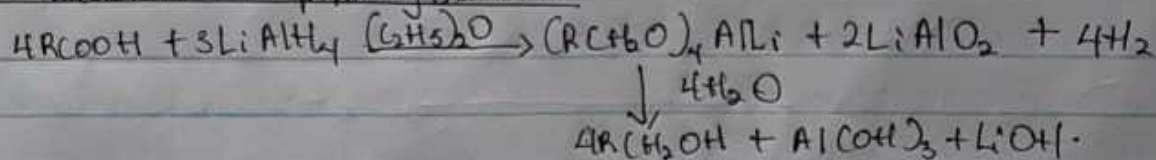 4RCOOH + 3LiAlH₄ (C₂H₅)₂O → (RCH₂O)₄AlLi + 2LiAlO₂ + 4H₂
↓ 4H₂O
4RCH₂OH + Al(OH)₃ + LiOH.